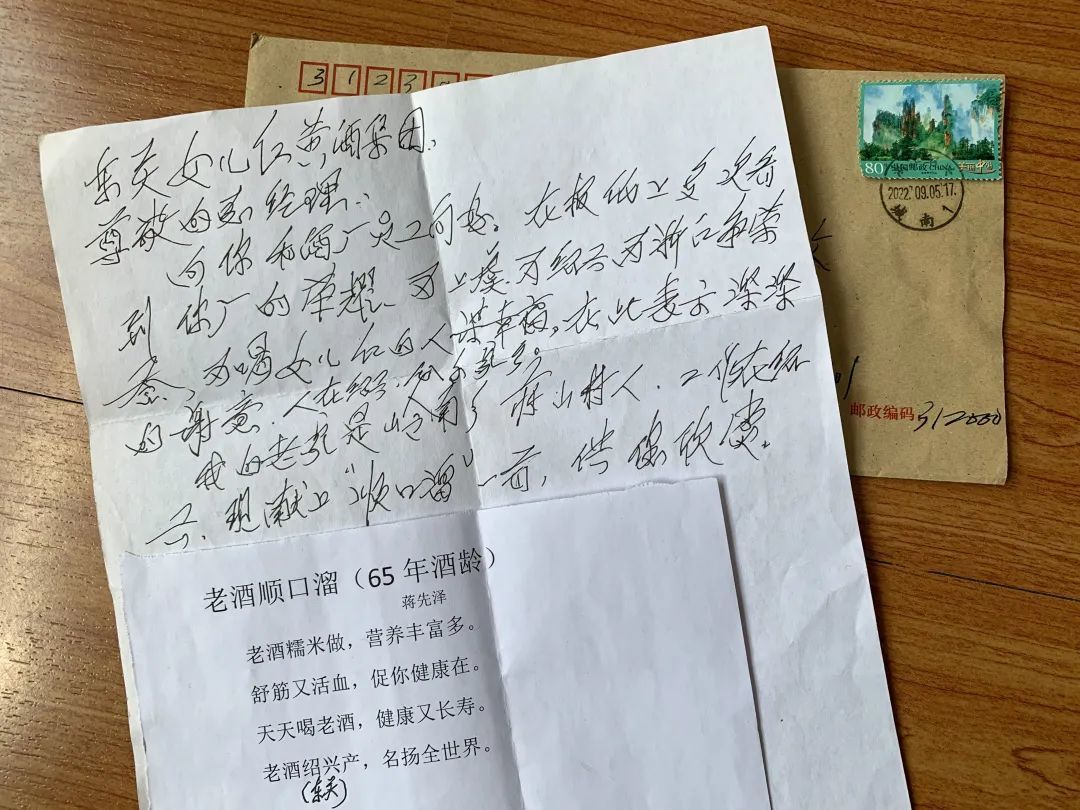 3123
东关女儿红黄酒集团.
尊敬的 经理:
向你和酒厂员工问好。在报纸上多次看
到你厂的荣耀,为上虞.为绍兴为浙江争荣
,为喝女儿红的人 幸福,在此表示深深
的谢意.人在绍兴.
我的老家是岭南乡蒋山村人.工作在绍
兴.现献上"顺口溜"一首,供您欣赏.
老酒顺口溜(65 年酒龄)
蒋先泽
老酒糯米做,营养丰富多。
舒筋又活血,促你健康在。
天天喝老酒,健康又长寿。
老酒绍兴产,名扬全世界。
(东关)
80 中国邮政 CHINA
2022.09.05.17
南 1
邮政编码 312000